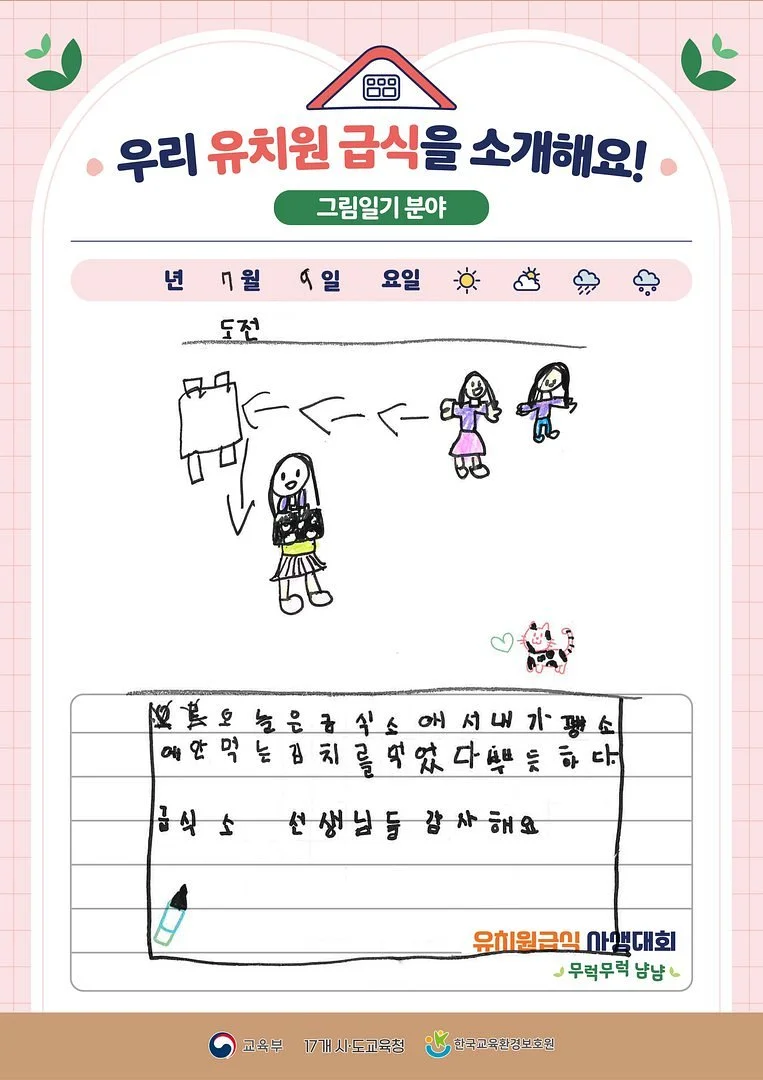 우리 유치원 급식을 소개해요!
그림일기 분야
년 7월 9일 요일
도전
오늘은급식소에서내가평소
에안먹는김치를먹었다뿌듯하다
급식소 선생님들 감사해요
유치원급식 사생대회
무럭무럭 냠냠
교육부 17개 시·도교육청 한국교육환경보호원